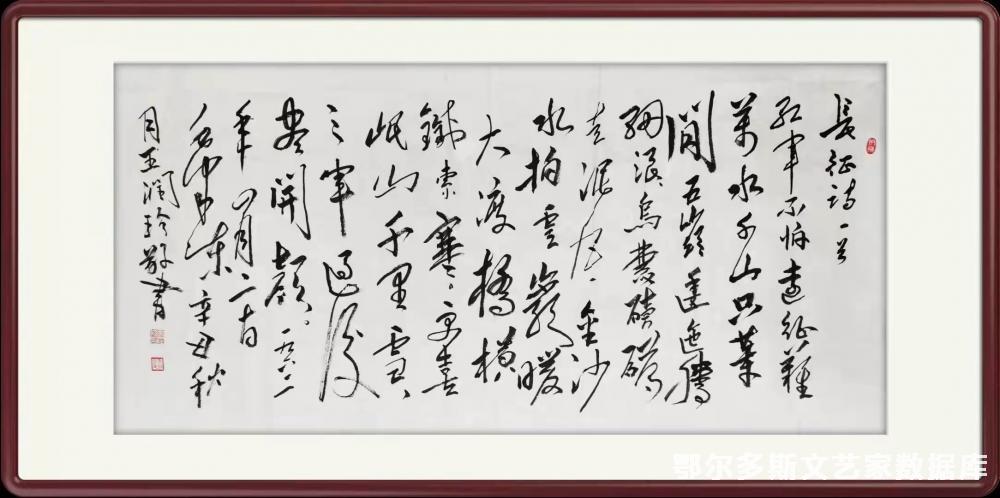 長征詩一首
紅軍不怕遠征難
萬水千山只等
閒五嶺逶迤騰
細浪烏蒙磅礴
走泥丸金沙
水拍雲巖暖
大渡橋橫
鐵索寒更喜
岷山千里雪
三軍過後
盡開顏一九六二
年四月二十日
辛丑秋
月玉潤玲敬書
鄂尔多斯文艺家数据库